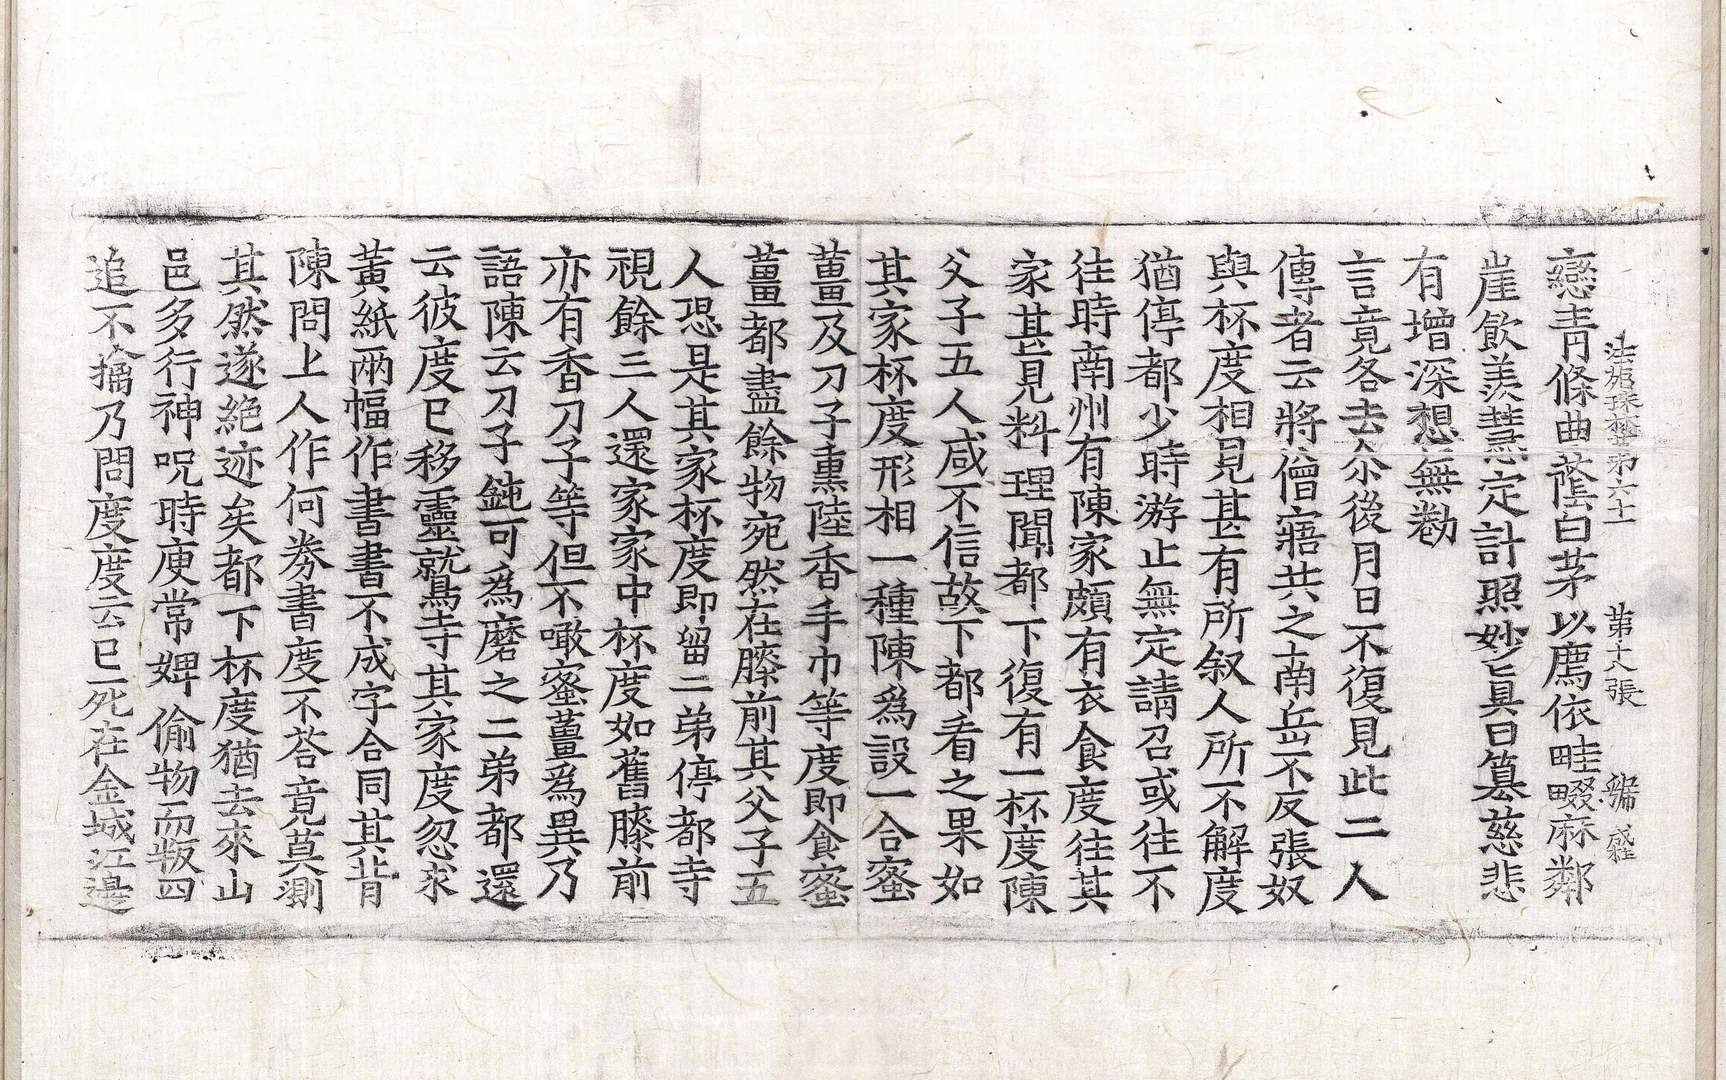 法苑珠林第六十一 第十八張
戀青條曲蔭白茅以薦依畦啜麻鄰
崖飲羨慧定計照妙旨真曰篡慈悲
有增深想無勌
言竟各去尒後月日不復見此二人
傳者云將僧寤共之南岳不反張奴
與杯度相見甚有所叙人所不解度
猶停都少時游止無定請召或往不
往時南州有陳家頗有衣食度往其
家甚見料理聞都下復有一杯度陳
父子五人咸不信故下都看之果如
其家杯度形相一種陳爲設一合蜜
薑及刀子熏陸香手巾等度即食蜜
薑都盡餘物宛然在膝前其父子五
人恐是其家杯度即留二弟停都寺
視餘三人還家家中杯度如舊膝前
亦有香刀子等但不噉蜜薑爲異乃
語陳云刀子鈍可爲磨之二弟都還
云彼度已移靈鷲寺其家度忽求
黃紙兩幅作書書不成字合同其背
陳問上人作何券書度不荅竟莫測
其然遂絶迹矣都下杯度猶去來山
邑多行神呪時庾常婢偷物而叛四
追不擒乃問度度云已死在金城江邊